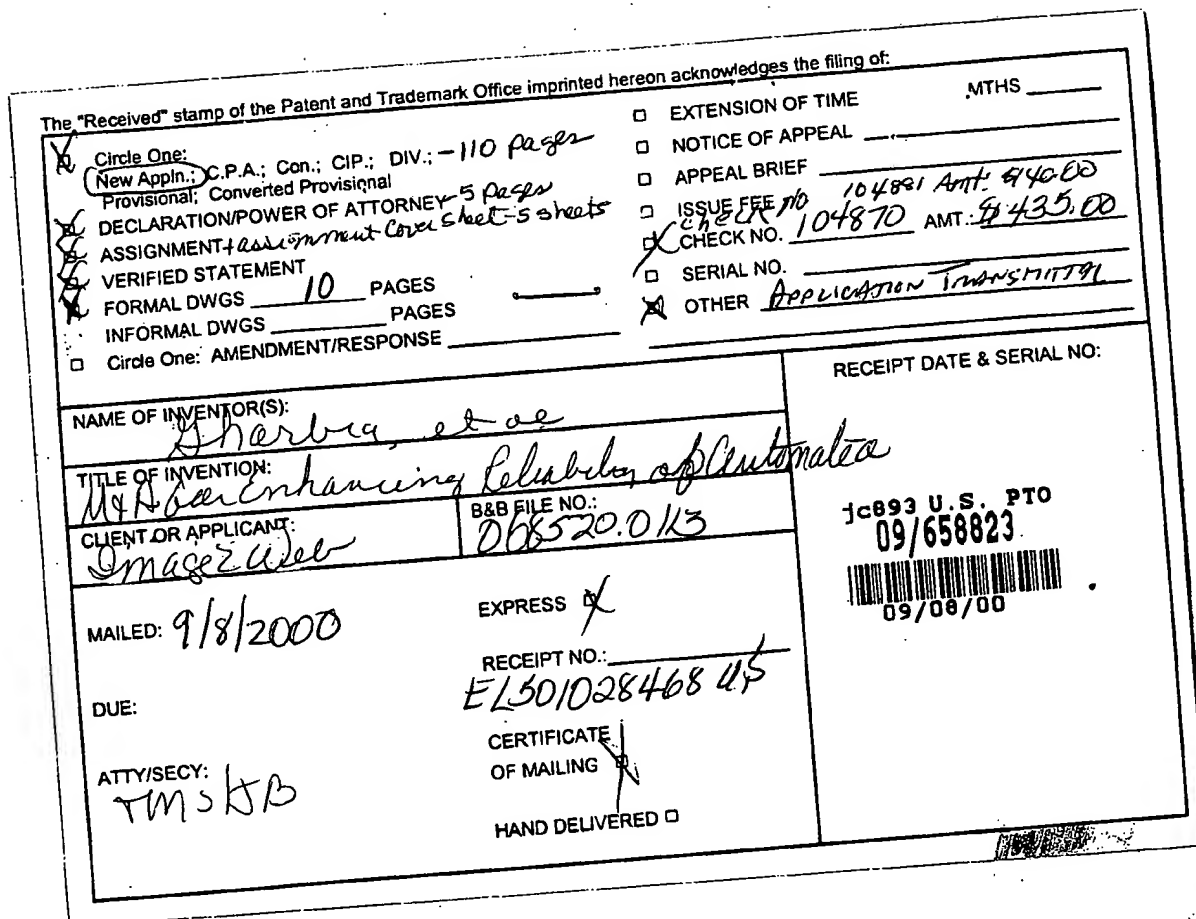 The "Received" stamp of the Patent and Trademark Office imprinted hereon acknowledges the filing of:
Circle One:
New Appln.; C.P.A.; Con.; CIP.; DIV.; -110 pages
Provisional; Converted Provisional
DECLARATION/POWER OF ATTORNEY-5 pages
ASSIGNMENT + assignment Cover Sheet-5 sheets
VERIFIED STATEMENT
FORMAL DWGS 10 PAGES
INFORMAL DWGS PAGES
Circle One: AMENDMENT/RESPONSE
EXTENSION OF TIME MTHS
NOTICE OF APPEAL
APPEAL BRIEF
ISSUE FEE
check no 104881 Amt: $140.00
CHECK NO. 104870 AMT.: $435.00
SERIAL NO.
OTHER APPLICATION TRANSMITTAL
NAME OF INVENTOR(S):
Gharbia, et al
TITLE OF INVENTION:
Enhancing Reliability of Automated
CLIENT OR APPLICANT:
Image2Web
B&B FILE NO.:
068520.0113
MAILED: 9/8/2000
DUE:
ATTY/SECY:
EXPRESS
RECEIPT NO.:
EL501028468 US
CERTIFICATE
OF MAILING
HAND DELIVERED
RECEIPT DATE & SERIAL NO:
jc893 U.S. PTO
09/658823
09/08/00